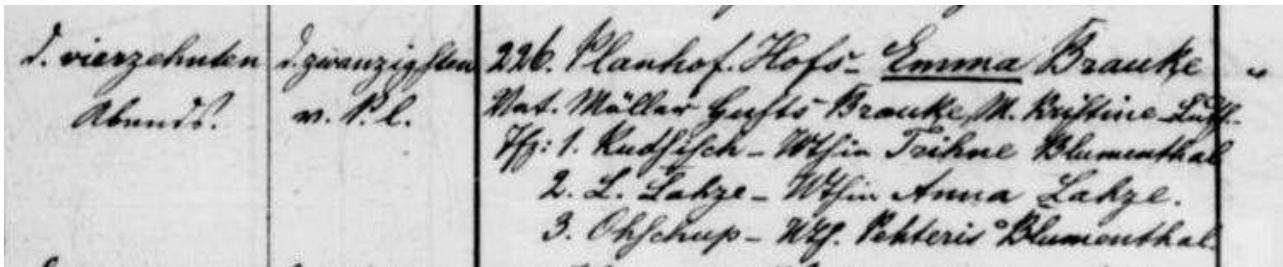 d. vierzehnten d. zwanzigsten 226. Planhof. Hofs- Emma Brauke "
Abends. v. P. l. Vat. Müller Gusts Brauke, M. Kristine Luth.
Tfz: 1. Kudsisch - Wthin Trihne Blumenthal
2. L. Lahze - Wthin Anna Lahze.
3. Ohschup - Wth. Pehteris Blumenthal